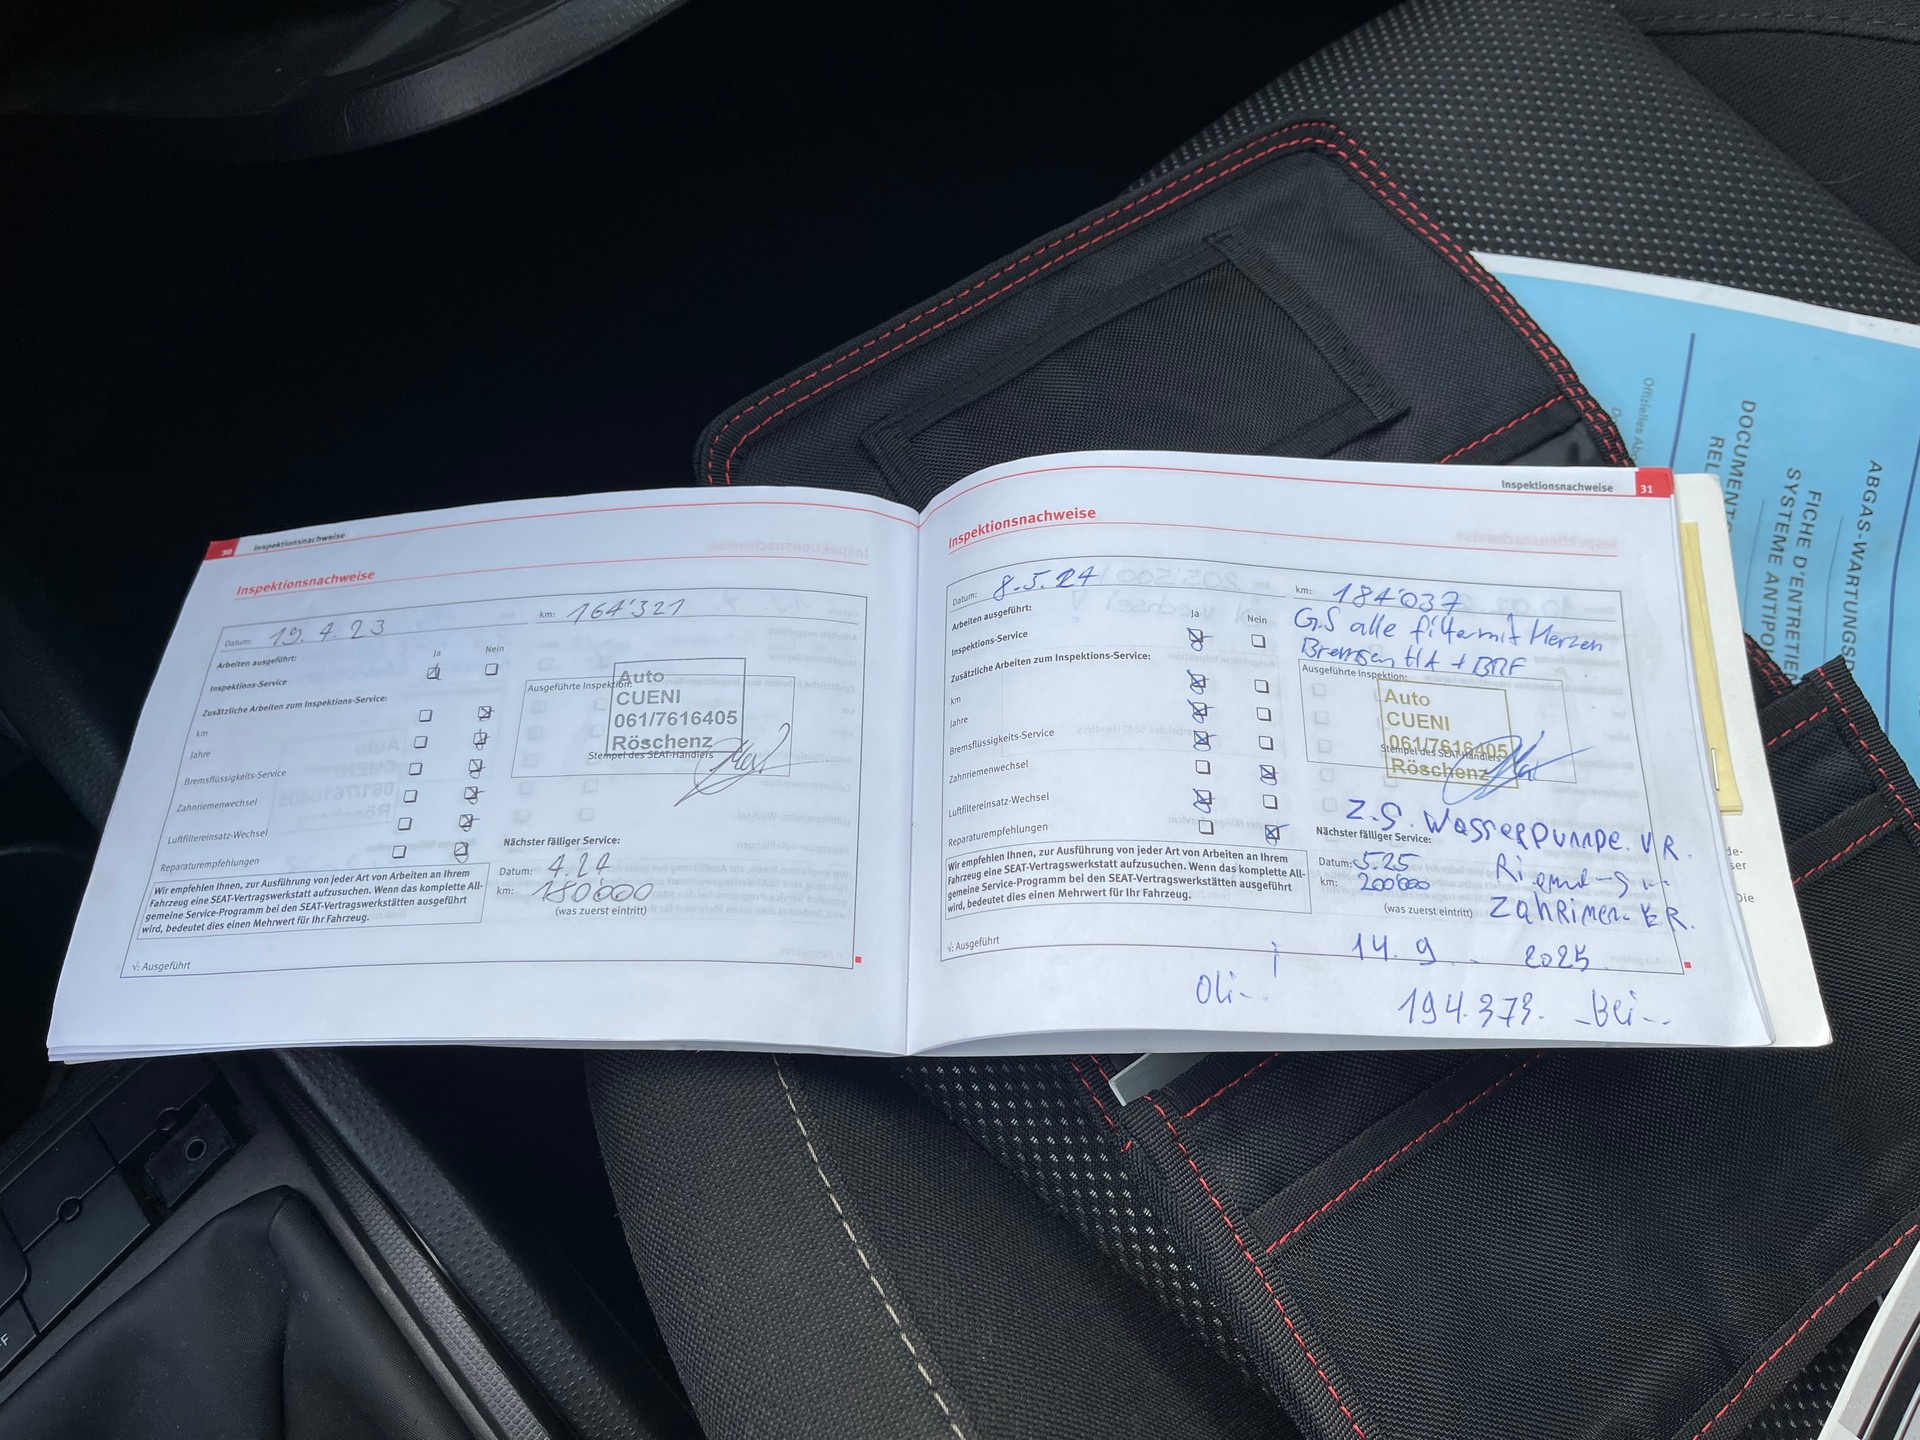 30 Inspektionsnachweise
Inspektionsnachweise
Datum: 19.4.23
km: 164'321
Arbeiten ausgeführt:
Ja
Nein
Inspektions-Service
Zusätzliche Arbeiten zum Inspektions-Service:
km
Jahre
Bremsflüssigkeits-Service
Zahnriemenwechsel
Luftfiltereinsatz-Wechsel
Reparaturempfehlungen
Ausgeführte Inspektion:
Auto
CUENI
061/7616405
Röschenz
Stempel des SEAT-Händlers
Nächster fälliger Service:
Datum: 4.24
km: 180000
(was zuerst eintritt)
Wir empfehlen Ihnen, zur Ausführung von jeder Art von Arbeiten an Ihrem
Fahrzeug eine SEAT-Vertragswerkstatt aufzusuchen. Wenn das komplette All-
gemeine Service-Programm bei den SEAT-Vertragswerkstätten ausgeführt
wird, bedeutet dies einen Mehrwert für Ihr Fahrzeug.
√: Ausgeführt
Inspektionsnachweise 31
Inspektionsnachweise
Datum: 8.5.24
km: 184'037
Arbeiten ausgeführt:
Ja
Nein
GS alle filter mit Kerzen
Bremsen HA + BRF
Inspektions-Service
Zusätzliche Arbeiten zum Inspektions-Service:
km
Jahre
Bremsflüssigkeits-Service
Zahnriemenwechsel
Luftfiltereinsatz-Wechsel
Reparaturempfehlungen
Ausgeführte Inspektion:
Auto
CUENI
061/7616405
Stempel des SEAT-Händlers
Röschenz
Z.S. Wasserpumpe. VR.
Nächster fälliger Service:
Datum: 5.25
km: 200'000
(was zuerst eintritt)
Zahrimen. ER.
Wir empfehlen Ihnen, zur Ausführung von jeder Art von Arbeiten an Ihrem
Fahrzeug eine SEAT-Vertragswerkstatt aufzusuchen. Wenn das komplette All-
gemeine Service-Programm bei den SEAT-Vertragswerkstätten ausgeführt
wird, bedeutet dies einen Mehrwert für Ihr Fahrzeug.
√: Ausgeführt
14.9.. 2025.
Oli-.
194.373. -Bei-..
ABGAS-WARTUNGSD
FICHE D'ENTRETIEN
SYSTEME ANTIPOL
DOCUMENTO
Offizielles Ab